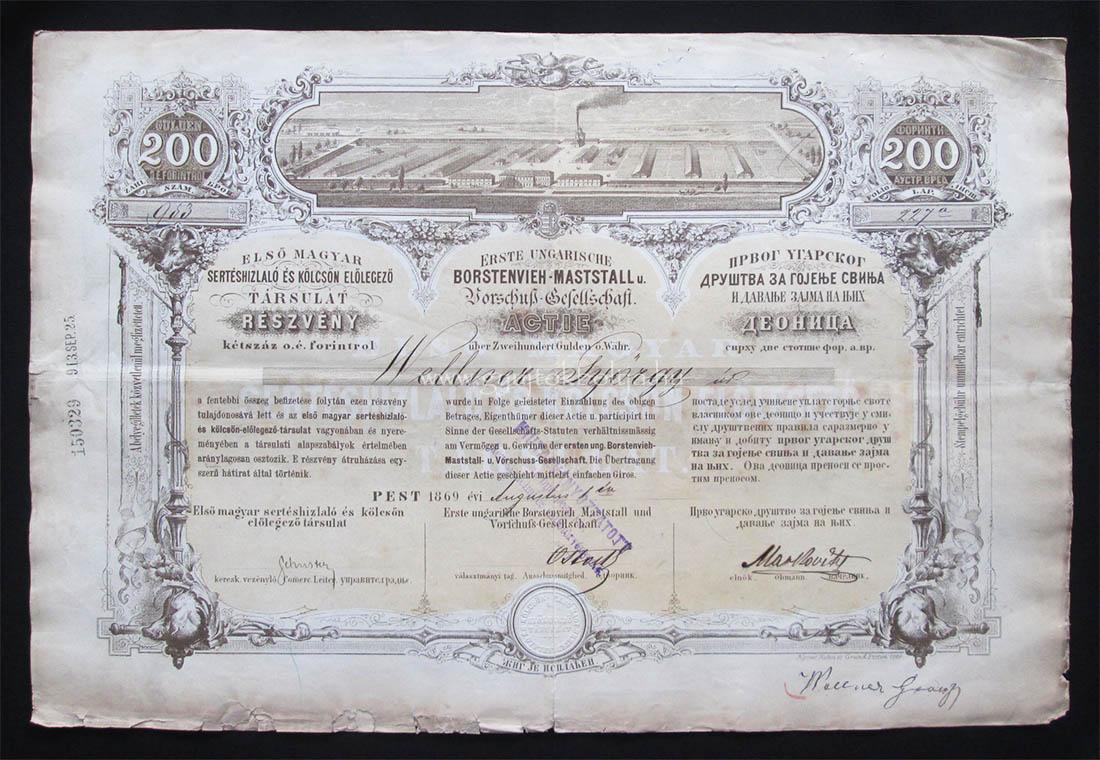 GULDEN
200
O.É. FORINTROL
SZÁM
903
ФОРИНТИ
200
АУСТР. ВРЕД.
227a
ELSŐ MAGYAR
SERTÉSHIZLALÓ ÉS KÖLCSÖN ELŐLEGEZŐ
TÁRSULAT
RÉSZVÉNY
kétszáz o.é. forintrol
ERSTE UNGARISCHE
BORSTENVIEH-MASTSTALL u.
Vorschuß-Gesellschaft.
ACTIE
über Zweihundert Gulden ö. Währ.
ПРВОГ УГАРСКОГ
ДРУШТВА ЗА ГОЈЕЊЕ СВИЊА
И ДАВАЊЕ ЗАЈМА НА ЊИХ
ДЕОНИЦА
сврху две стотине фор. а.вр.
Wellner György úr
a fentebbi összeg befizetése folytán ezen részvény
tulajdonosává lett és az első magyar sertéshizlaló-
és kölcsön-előlegező-társulat vagyonában és nyere-
ményében a társulati alapszabályok értelmében
aránylagosan osztozik. E részvény átruházása egy-
szerű hátirat által történik.
wurde in Folge geleisteter Einzahlung des obigen
Betrages, Eigenthümer dieser Actie u. participirt im
Sinne der Gesellschafts-Statuten verhältnissmässig
am Vermögen u. Gewinne der ersten ung. Borstenvieh-
Maststall- u. Vorschuss-Gesellschaft. Die Übertragung
dieser Actie geschieht mittelst einfachen Giros.
постаде услед учињене уплате горње своте
власником ове деонице и учествује у сми-
слу друштвених правила саразмерно у
имању и добиту првог угарског друш
тва за гојење свиња и давање зајма
на њих. Ова деоница преноси се прос-
тим преносом.
PEST 1869 évi Augustus 1 én
Első magyar sertéshizlaló és kölcsön
előlegező társulat
Erste ungarische Borstenvieh Maststall und
Vorschuß-Gesellschaft.
Прво угарско друштво за гојење свиња и
давање зајма на њих.
Schuster
keresk. vezénylő Comerc. Leiter,
választmányi tag. Ausschussmitglied.
Markovits
elnök. obmann. начелник.
ЖИГ ЈЕ ИСПЛАЋЕН
A bélyegilleték közvetlenül megfizettetett
Stempelgebühr unmittelbar entrichtet
150329 913.SEP.25.
Wellner Georg